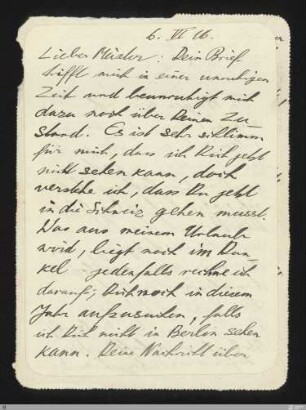 6. VI 16.
Lieber Meister: Dein Brief
trifft mich in einer unruhigen
Zeit und beunruhigt mich
dazu noch über Deinen Zu-
stand. Es ist sehr schlimm
für mich, dass ich Dich jetzt
nicht sehen kann, doch
verstehe ich, dass Du jetzt
in die Schweiz gehen musst.
Was aus meinem Urlaub
wird, liegt noch im Dun-
kel, jedenfalls rechne ich
darauf, Dich noch in diesem
Jahr aufzusuchen, falls
ich Dich nicht in Berlin sehen
kann. Deine Nachricht über